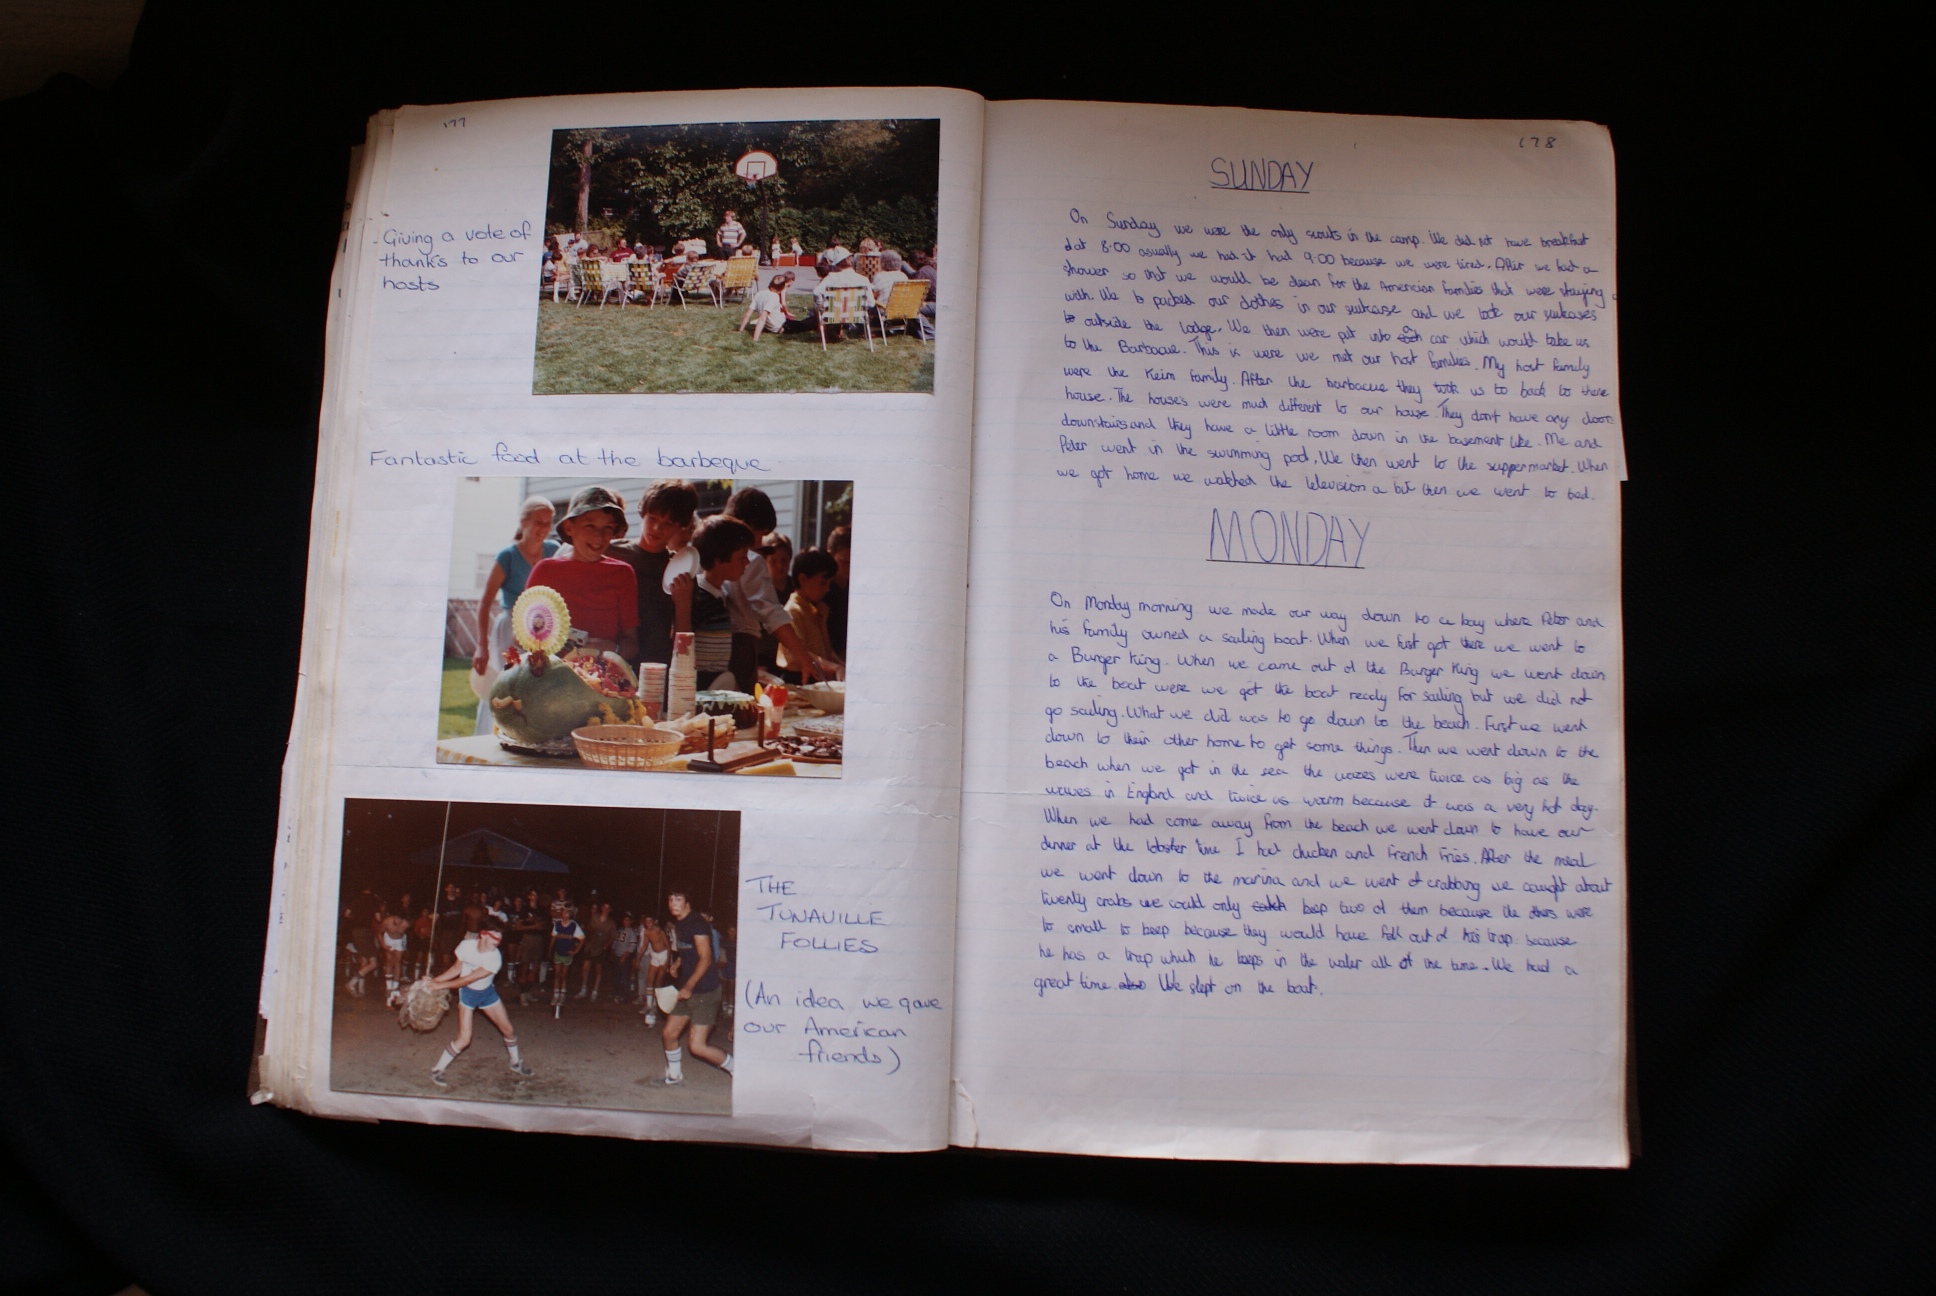 177
Giving a vote of
thanks to our
hosts
Fantastic food at the barbeque
THE
TUNAVILLE
FOLLIES
(An idea we gave
our American
friends)
178
SUNDAY
On Sunday we were the only scouts in the camp. We did not have breakfast
at 8:00 usually we had it had 9:00 because we were tired. After we had a
shower so that we would be clean for the American families that were staying
with. We packed our clothes in our suitcase and we took our suitcases
outside the lodge. We then were put into car which would take us
to the Barbacue. This is were we met our host families. My host family
were the Keim Family. After the barbacue they took us to back to there
house. The houses were much different to our house. They dont have any doors
downstairs and they have a little room down in the basement like. Me and
Peter went in the swimming pool. We then went to the supper market. When
we got home we watched the television a bit then we went to bed.
MONDAY
On Monday morning we made our way down to a bay where Peter and
his family owned a sailing boat. When we first got there we went to
a Burger King. When we came out of the Burger King we went down
to the boat were we got the boat ready for sailing but we did not
go sailing. What we did was to go down to the beach. First we went
down to their other home to get some things. Then we went down to the
beach when we got in the sea the waves were twice as big as the
waves in England and twice as warm because it was a very hot day.
When we had come away from the beach we went down to have our
dinner at the lobster I had chicken and French Fries. After the meal
we went down to the marina and we went crabbing we caught about
twenty crabs we could only keep two of them because the others were
to small to keep because they would have fell out of his trap because
he has a trap which he keeps in the water all of the time. We had a
great time We slept on the boat.